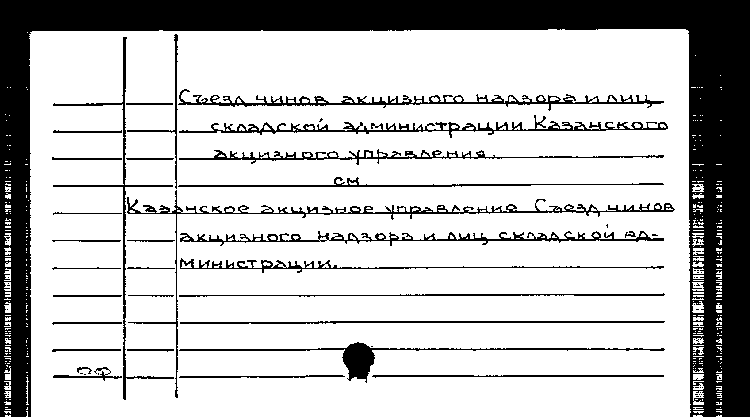 Съезд чинов акцизного надзора и лиц
складской администрации Казанского
акцизного управления.
см
Казанское акцизное управление Съезд чинов
акцизного надзора и лиц складской ад-
министрации.
оф